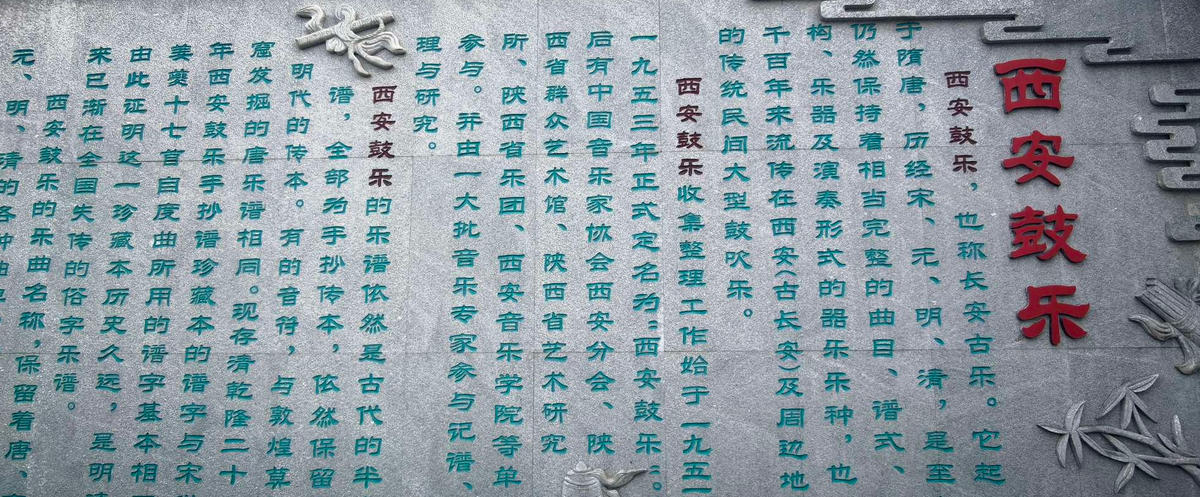 西安鼓乐
西安鼓乐，也称长安古乐。它起
于隋唐，历经宋、元、明、清，是至
仍然保持着相当完整的曲目、谱式、
构、乐器及演奏形式的器乐乐种，也
千百年来流传在西安(古长安)及周边地
的传统民间大型鼓吹乐。
西安鼓乐收集整理工作始于一九五一
一九五三年正式定名为“西安鼓乐”。
后有中国音乐家协会西安分会、陕
西省群众艺术馆、陕西省艺术研究
所、陕西省乐团、西安音乐学院等单
参与。并由一大批音乐专家参与记谱、
理与研究。
西安鼓乐的乐谱依然是古代的半
谱，全部为手抄传本，依然保留
明代的传本。有的音符，与敦煌莫
窟发掘的唐乐谱相同。现存清乾隆二十
年西安鼓乐手抄谱珍藏本的谱字与宋
姜夔十七首自度曲所用的谱字基本相
由此证明这一珍藏本历史久远，是明
来已渐在全国失传的俗字乐谱。
西安鼓乐的乐曲名称，保留着唐、
元、明、清的各种曲